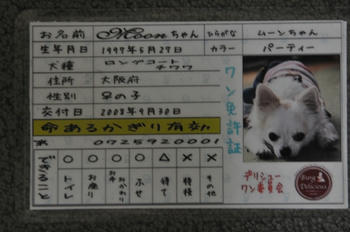 お名前 Moonちゃん ひらがな ムーンちゃん
生年月日 1997年5月27日 カラー パーティー
犬種 ロングコートチワワ
住所 大阪府
性別 女の子
交付日 2008年9月30日
命あるかぎり有効
0725920001
できること
○ トイレ
○ お座り
○ お手 おかわり
○ ふせ
△ 待て
× 特技
× その他
ワン免許証
デリシュー
ワン委員会
Delicious